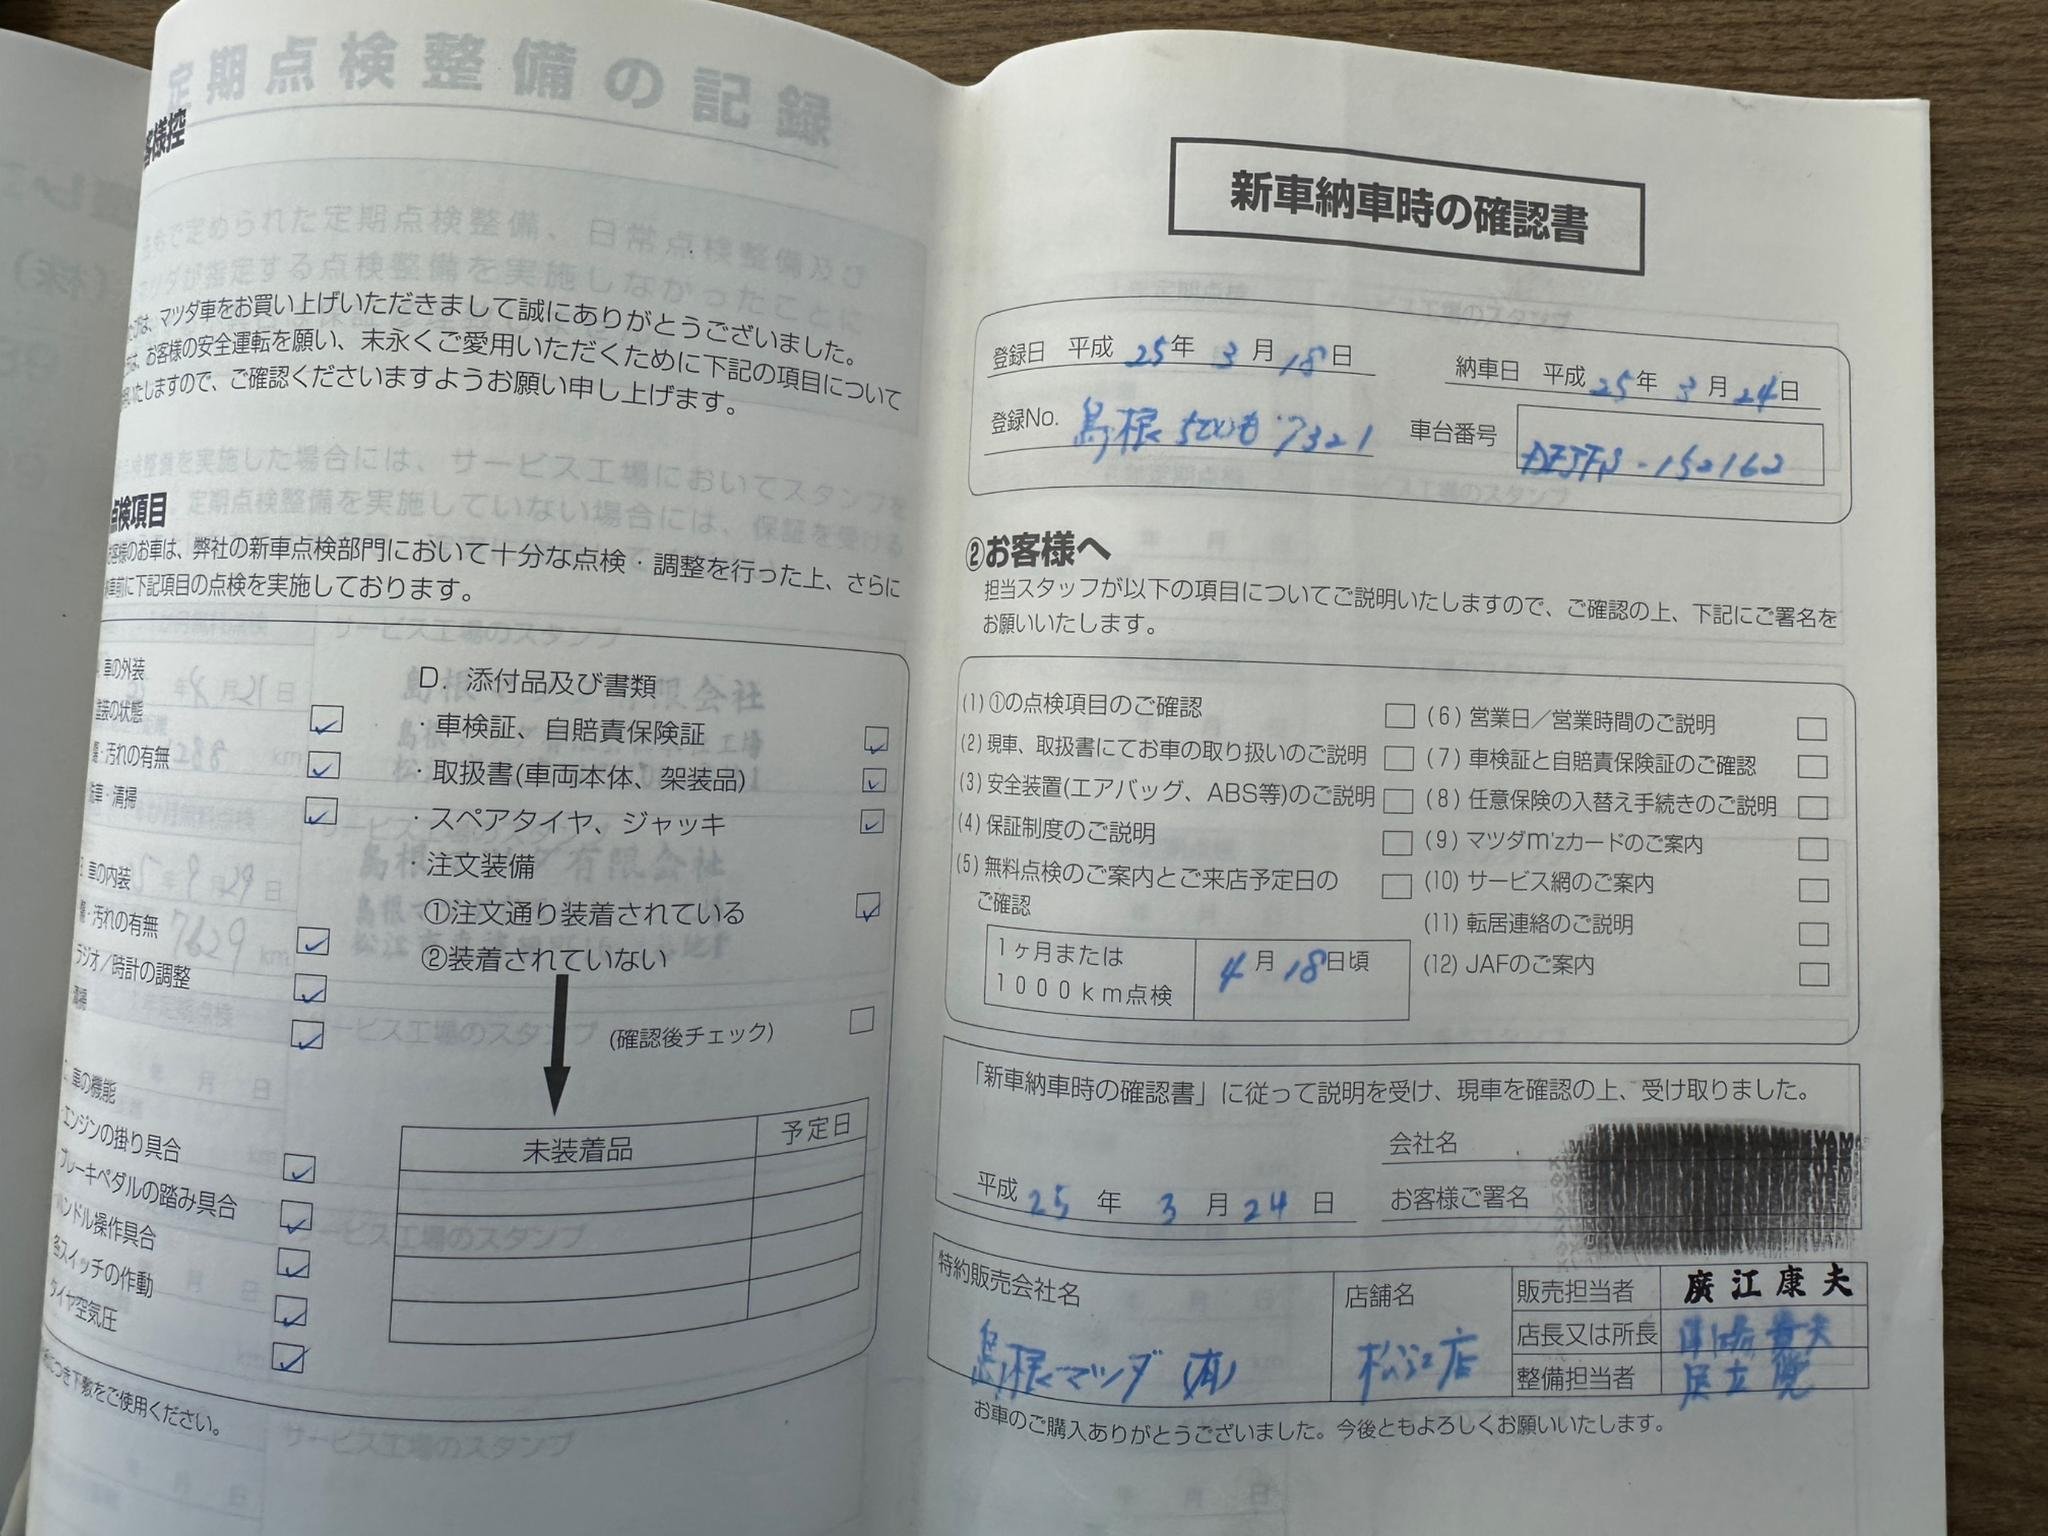 定期点検整備の記録
客様控
マツダ車をお買い上げいただきまして誠にありがとうございました。
お客様の安全運転を願い、末永くご愛用いただくために下記の項目について
いたしますので、ご確認くださいますようお願い申し上げます。
点検項目
お客様のお車は、弊社の新車点検部門において十分な点検・調整を行った上、さらに
車前に下記項目の点検を実施しております。
車の外装
塗装の状態
傷・汚れの有無
洗車・清掃
車の内装
傷・汚れの有無
ラジオ/時計の調整
清掃
車の機能
エンジンの掛り具合
ブレーキペダルの踏み具合
ハンドル操作具合
各スイッチの作動
タイヤ空気圧
D. 添付品及び書類
・車検証、自賠責保険証
・取扱書(車両本体、架装品)
・スペアタイヤ、ジャッキ
・注文装備
①注文通り装着されている
②装着されていない
(確認後チェック)
未装着品 予定日
につき下敷をご使用ください。
新車納車時の確認書
登録日 平成 25年 3月 18日
納車日 平成 25年 3月 24日
登録No. 島根 7321
車台番号 -152162
②お客様へ
担当スタッフが以下の項目についてご説明いたしますので、ご確認の上、下記にご署名を
お願いいたします。
(1) ①の点検項目のご確認
(2) 現車、取扱書にてお車の取り扱いのご説明
(3) 安全装置(エアバッグ、ABS等)のご説明
(4) 保証制度のご説明
(5) 無料点検のご案内とご来店予定日の
ご確認
1ヶ月または
1000km点検
4月18日頃
(6) 営業日/営業時間のご説明
(7) 車検証と自賠責保険証のご確認
(8) 任意保険の入替え手続きのご説明
(9) マツダm'zカードのご案内
(10) サービス網のご案内
(11) 転居連絡のご説明
(12) JAFのご案内
「新車納車時の確認書」に従って説明を受け、現車を確認の上、受け取りました。
平成 25 年 3 月 24 日
会社名
お客様ご署名
特約販売会社名
島根マツダ(有)
店舗名
松江店
販売担当者 廣江康夫
店長又は所長
整備担当者 足立
お車のご購入ありがとうございました。今後ともよろしくお願いいたします。